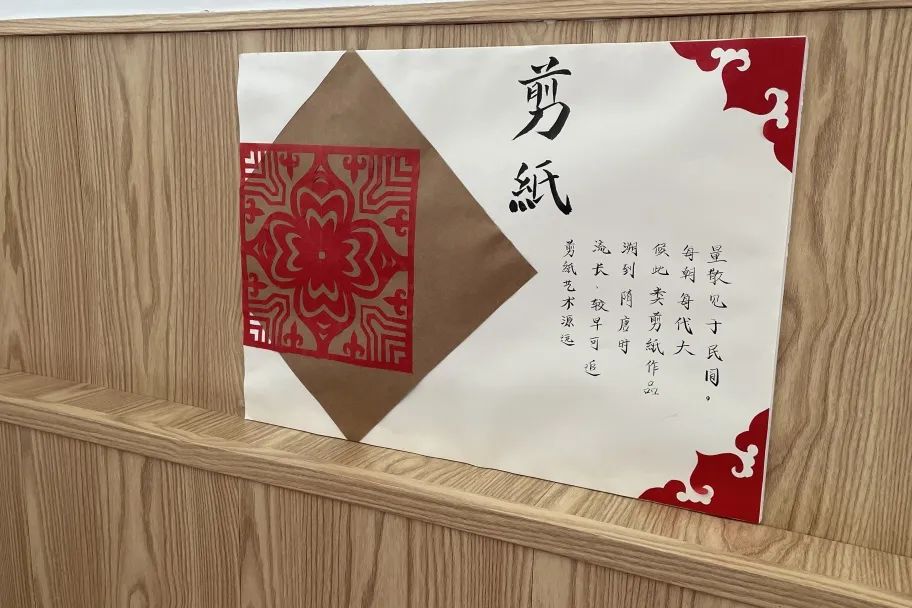 剪紙
剪紙艺术源远
流长，较早可追
溯到隋唐时
候此类剪紙作品
每朝每代大
量散见于民间。